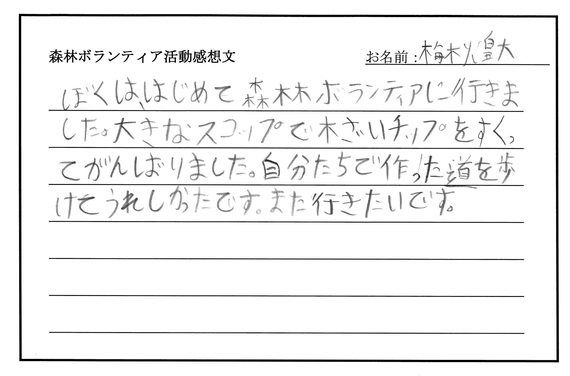 森林ボランティア活動感想文
お名前：梅村煌大
ぼくは、はじめて森林ボランティアに行きま
した。大きなスコップで木ざいチップをすくっ
てがんばりました。自分たちで作った道を歩
けてうれしかったです。また行きたいです。